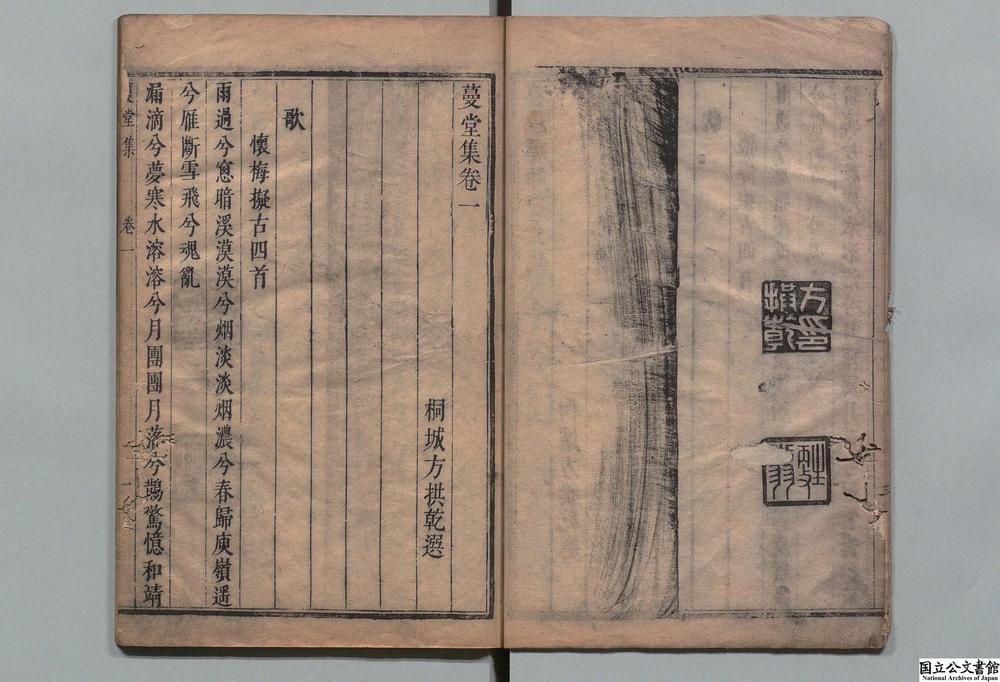 方拱乾印
蔓堂集卷一
桐城方拱乾選
歌
懷梅擬古四首
雨過兮窻暗溪漠漠兮烟淡淡烟濃兮春歸庾嶺遥
兮雁斷雪飛兮魂亂
漏滴兮夢寒水溶溶兮月團團月落兮鵲驚憶和靖
堂集 卷一 一
国立公文書館
National Archives of Japan